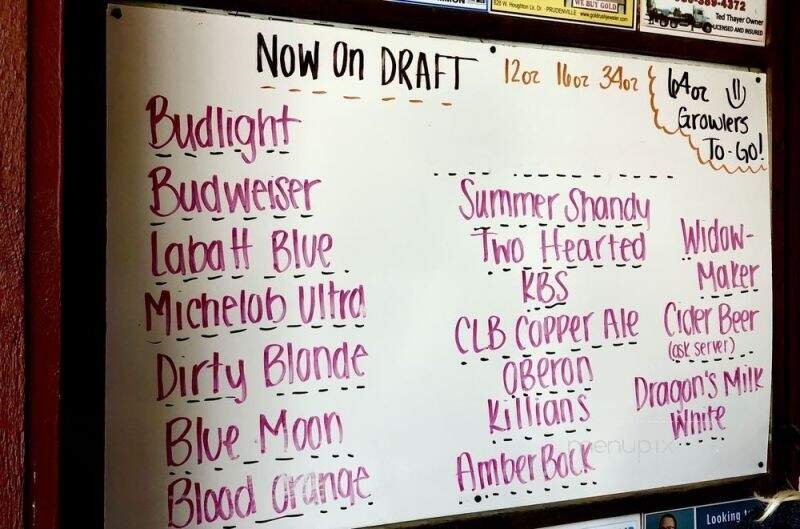 828 W. Houghton Lk. Dr. · PRUDENVILLE
WE BUY GOLD
Ted Thayer Owner
LICENSED AND INSURED
Now On DRAFT
12oz 16oz 34oz
64oz
Growlers
To-Go!
Budlight
Budweiser
Labatt Blue
Michelob Ultra
Dirty Blonde
Blue Moon
Blood Orange
Summer Shandy
Two Hearted
KBS
CLB Copper Ale
Oberon
Killians
Amber Bock
Widow-
Maker
Cider Beer
(ask server)
Dragon's Milk
White
menupix
Looking